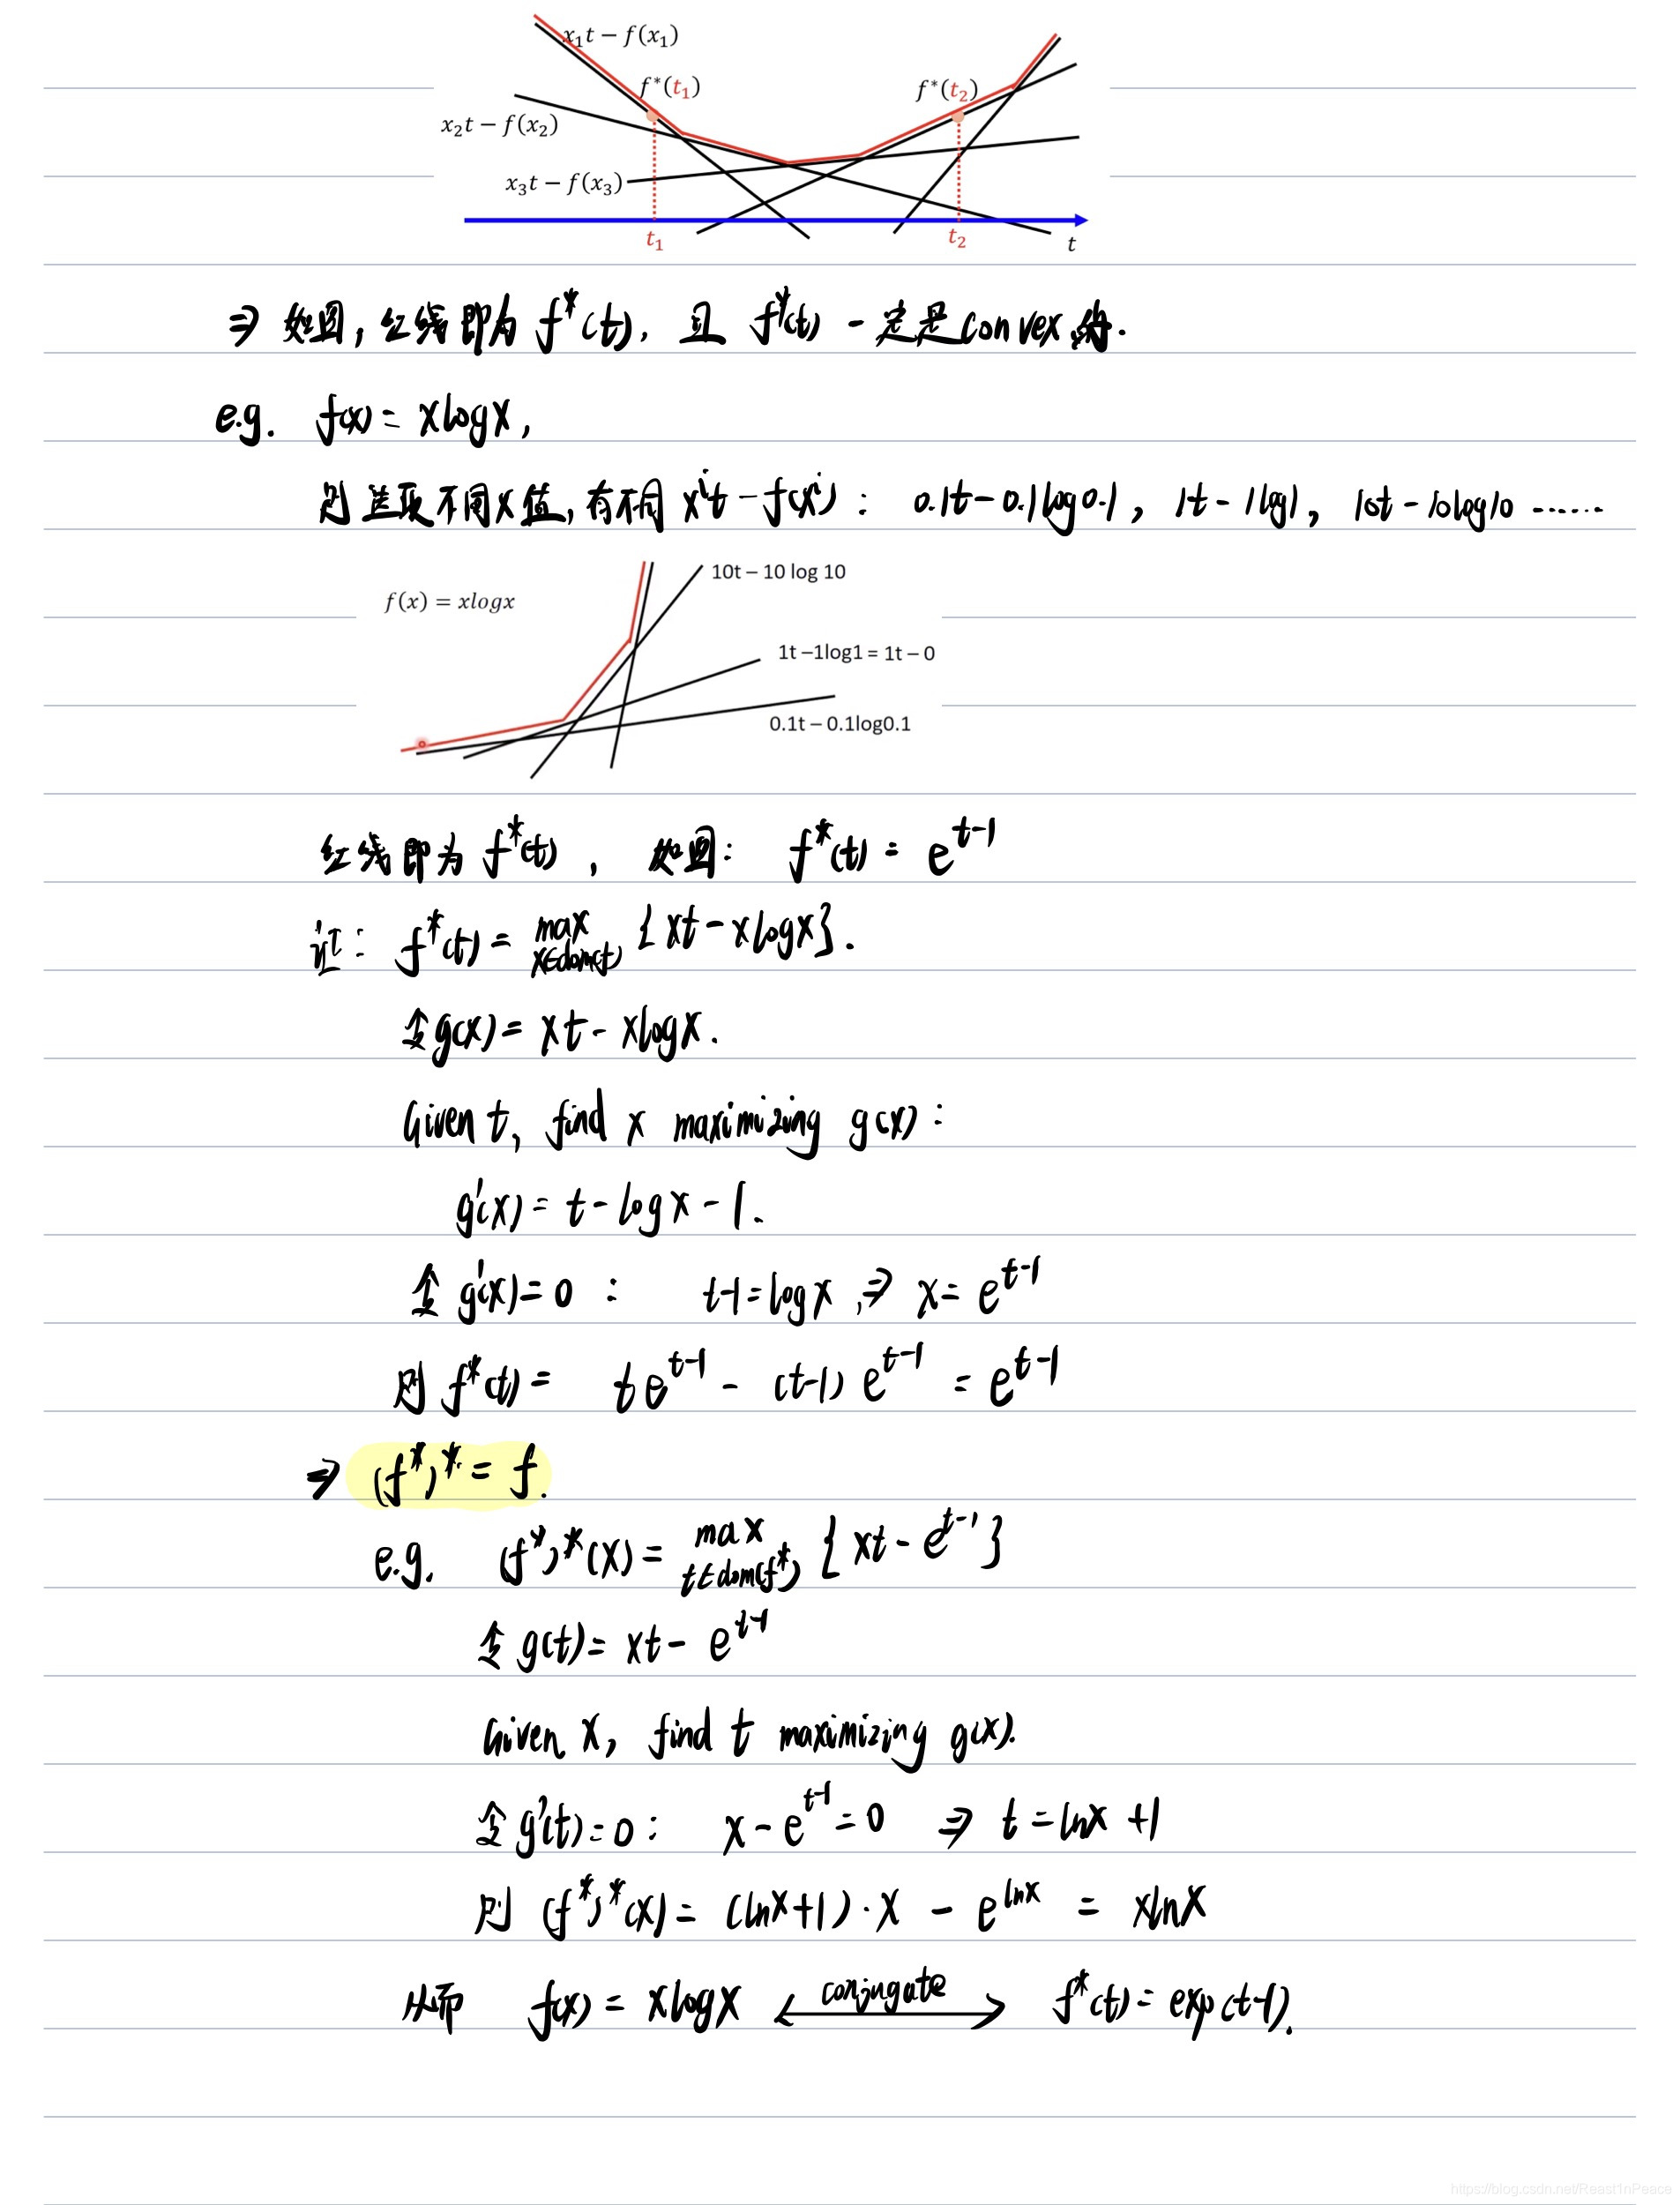 x₁t − f(x₁)
f*(t₁)
f*(t₂)
x₂t − f(x₂)
x₃t − f(x₃)
t₁
t₂
t
⇒ 如图, 红线即为 f*(t), 且 f*(t) 一定是 convex 的.
e.g. f(x) = xlogx,
则选取不同x值, 有不同 xⁱt − f(xⁱ) : 0.1t − 0.1log0.1, 1t − 1log1, 10t − 10log10 ……
10t – 10 log 10
f(x) = xlogx
1t –1log1 = 1t – 0
0.1t – 0.1log0.1
红线即为 f*(t), 如图: f*(t) = e^{t-1}
证: f*(t) = max_{x∈dom(f)} {xt − xlogx}.
令 g(x) = xt − xlogx.
Given t, find x maximizing g(x) :
g'(x) = t − logx − 1.
令 g'(x) = 0 : t-1 = logx, ⇒ x = e^{t-1}
则 f*(t) = te^{t-1} − (t-1) e^{t-1} = e^{t-1}
⇒ (f*)* = f.
e.g. (f*)*(x) = max_{t∈dom(f*)} {xt − e^{t-1}}
令 g(t) = xt − e^{t-1}
Given x, find t maximizing g(x).
令 g'(t) = 0 : x − e^{t-1} = 0 ⇒ t = lnx + 1
则 (f*)*(x) = (lnx+1)·x − e^{lnx} = xlnx
从而 f(x) = xlogx ⟷ conjugate f*(t) = exp(t-1).
https://blog.csdn.net/Reast1nPeace